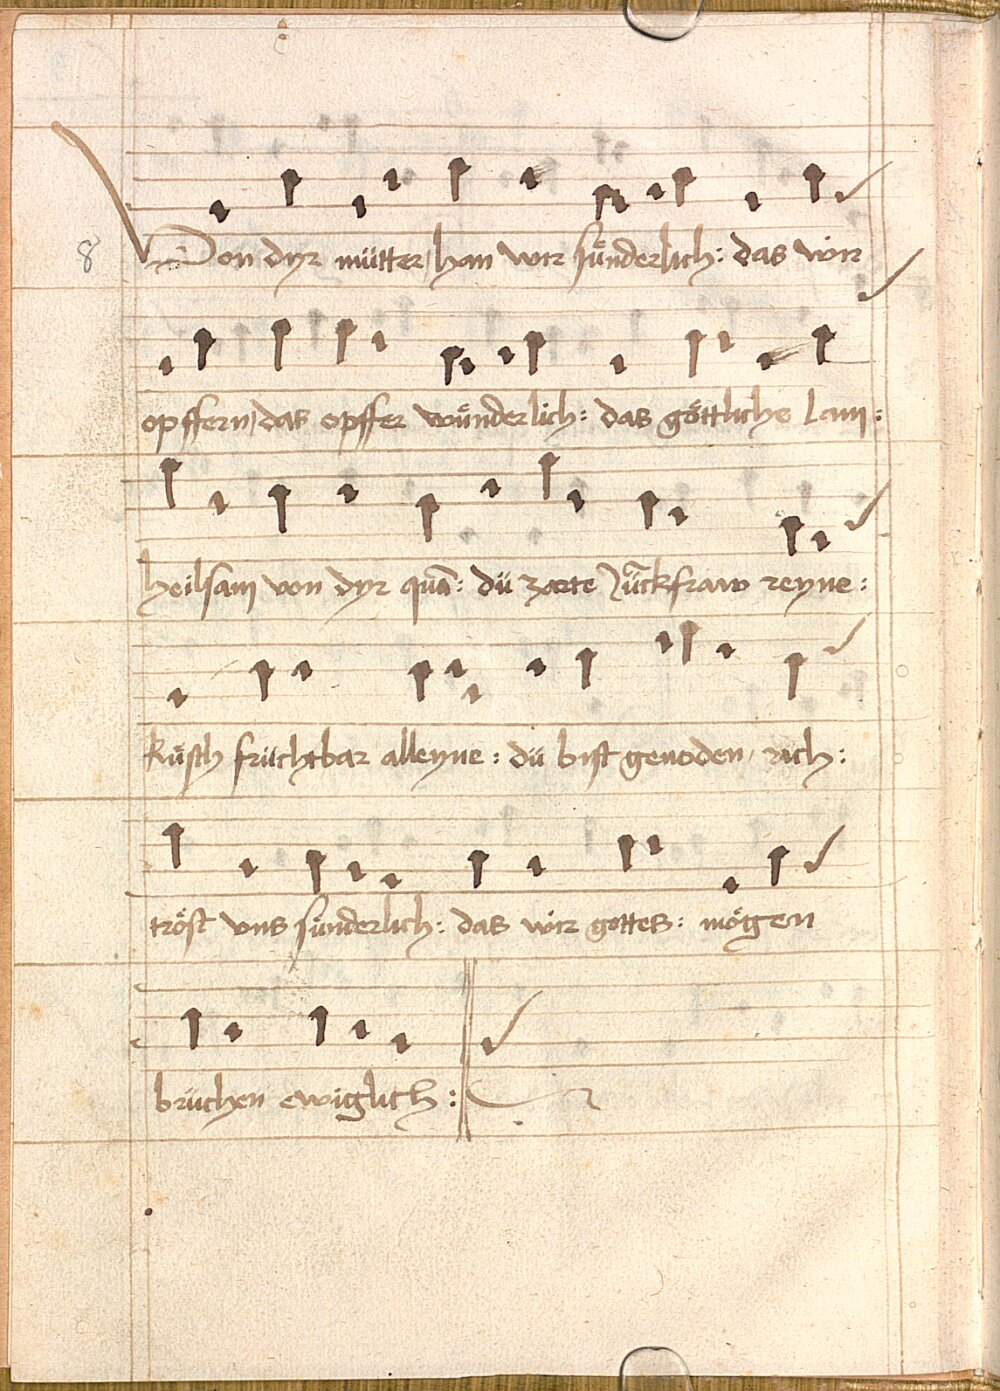 8
Von dyr mütter, han wir sünderlich: das wir
opffern, das opffer wünderlich: das göttliche lam:
heilsam von dyr quā: dü zarte Jückfraw reyne:
Küsch früchtbar alleyne: dü bist genoden, rich:
tröst vns sünderlich: das wir gottes: mögen
brüchen ewiglich: